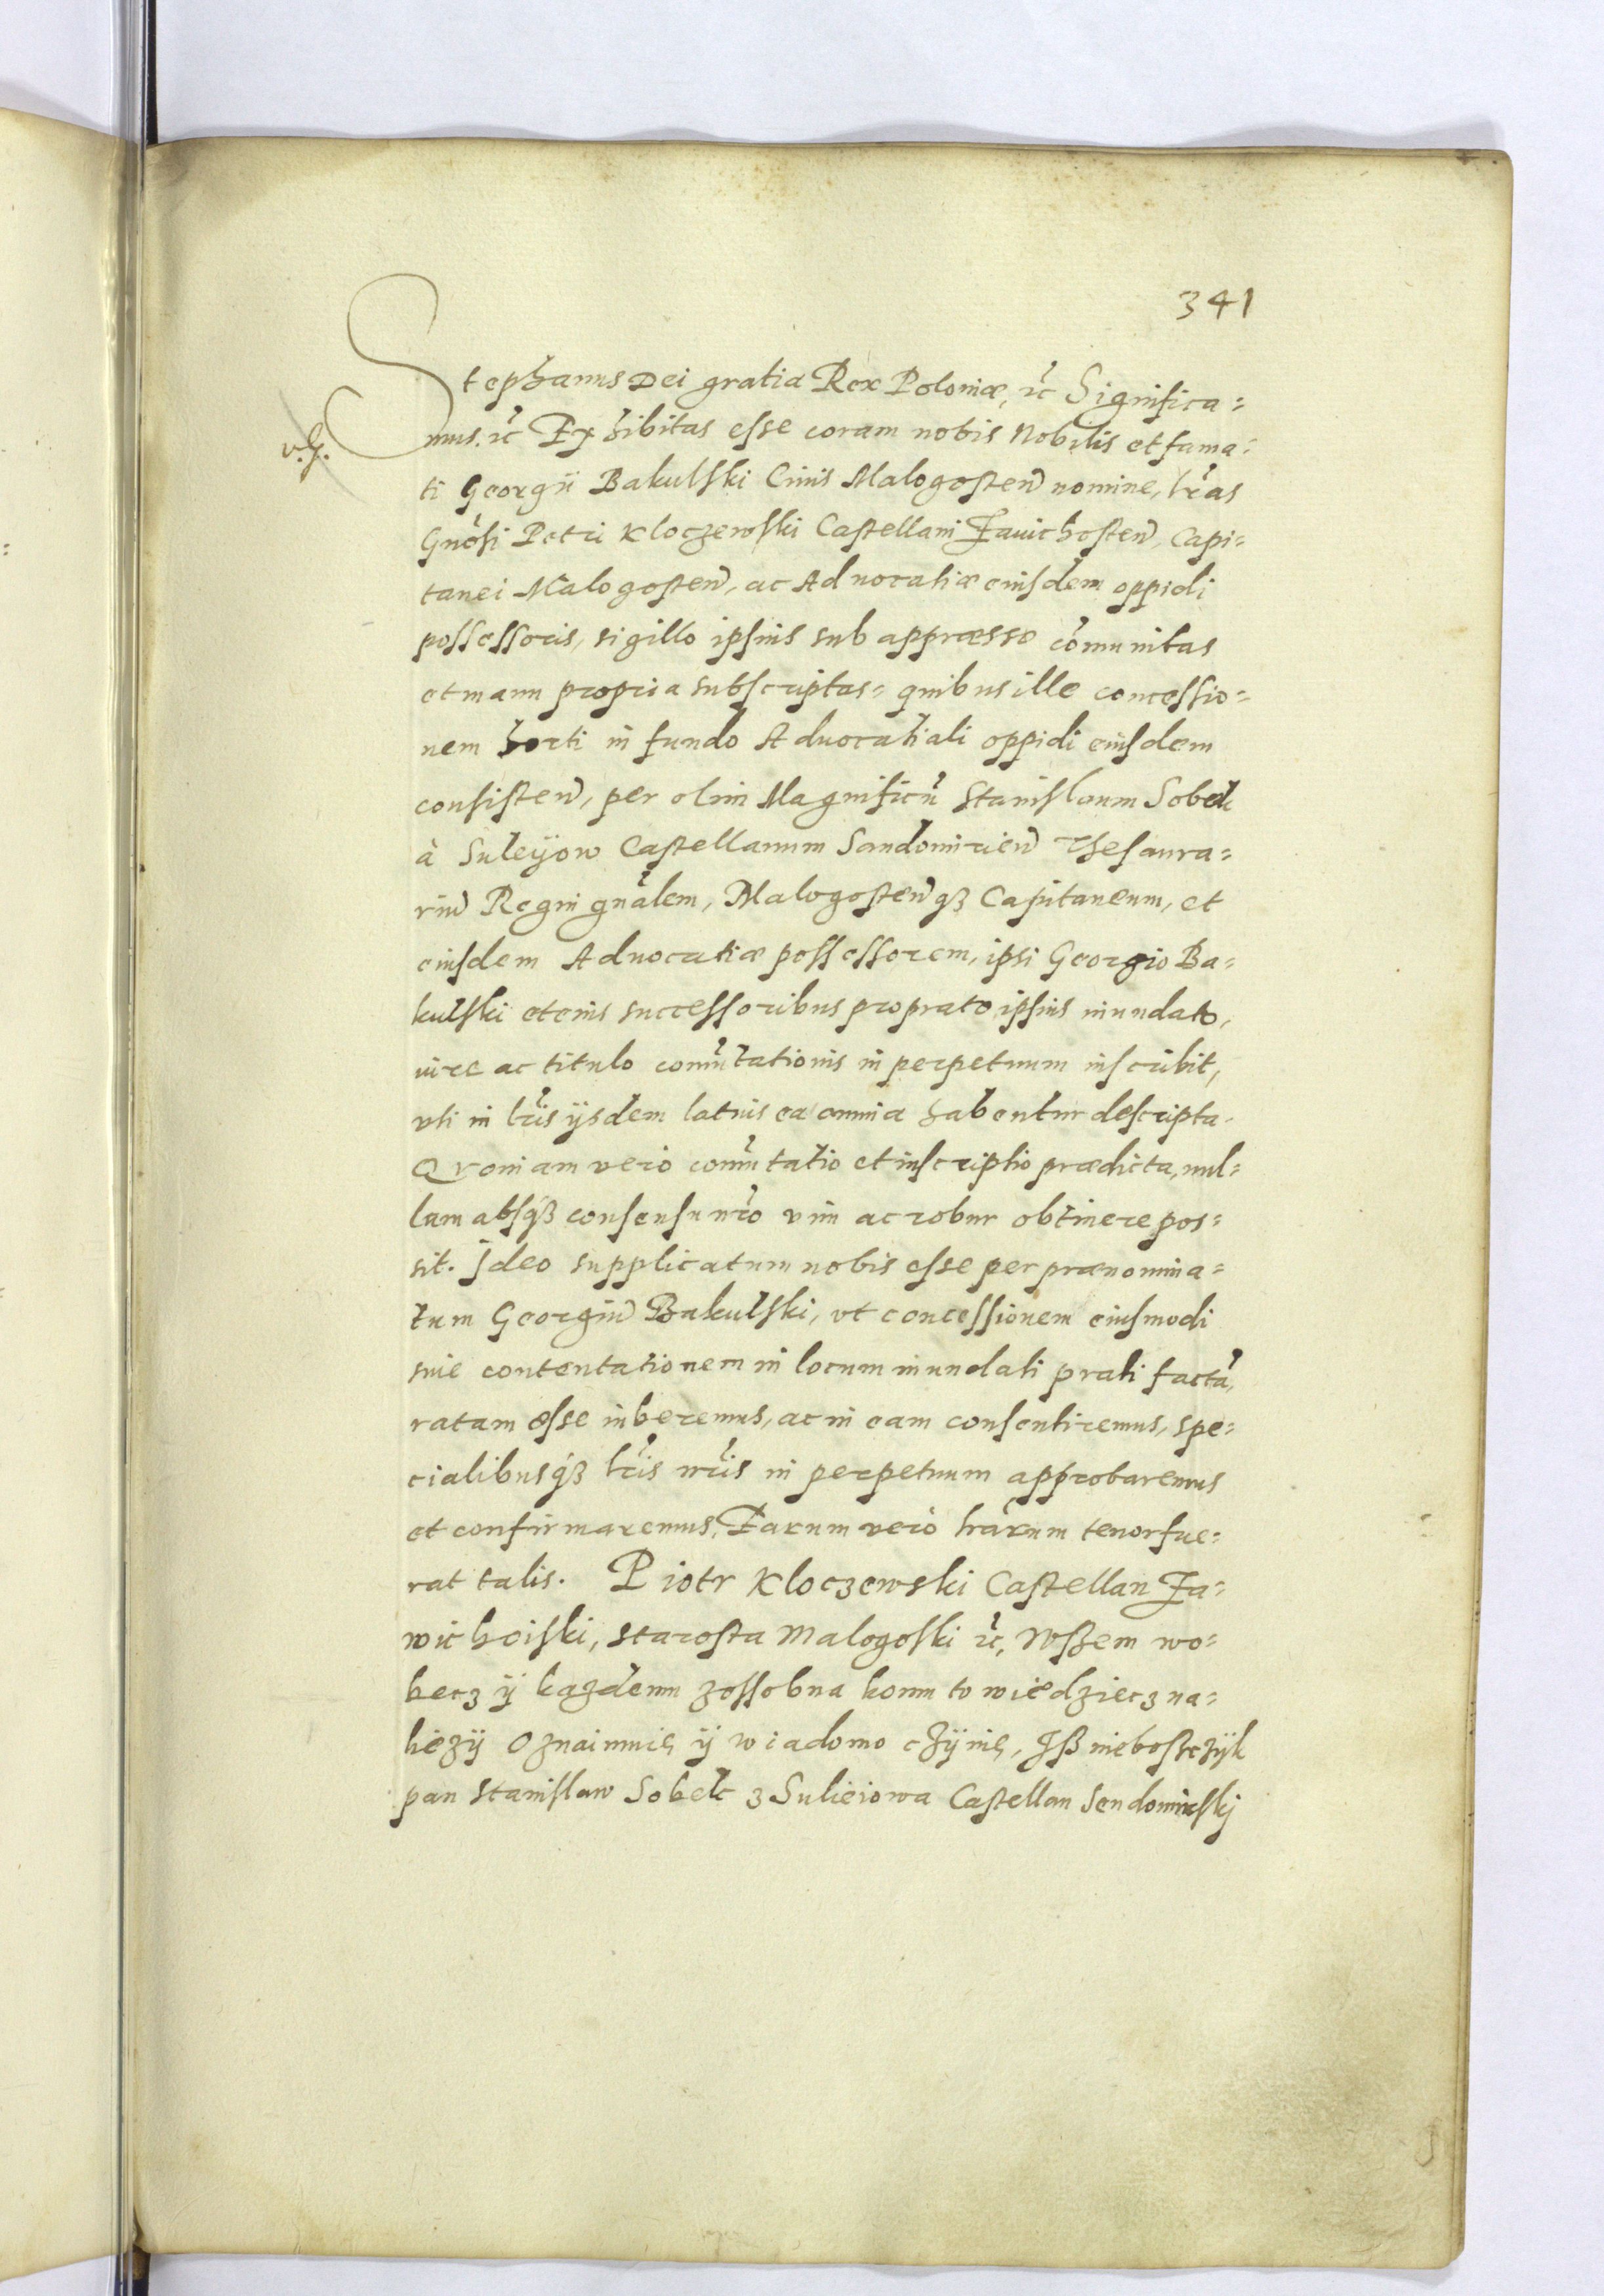 341
Stephanus Dei gratia Rex Poloniæ, ꝛc̃ Significa=
mus. ꝛc̃ Exhibitas esse coram nobis Nobilis et fama=
ti Georgii Bakulski Ciuis Malogosteñ nomine, lr̃as
Gnõsi Petri Kloczewski Castellani Zauichosteñ, Capi=
tanei Malogosteñ, ac Aduocatiæ eiusdem oppidi
possessoris, sigillo ipsius sub appræsso cõmunitas
et manu propria subscriptas= quibus ille concessio=
nem horti in fundo Aduocatiali oppidi eiusdem
consisteñ, per olim Magnificũ Stanislaum Sobek
à Suleyow Castellanum Sandomirieñ Thesaura=
riũ Regni gnãlem, Malogosteñqȝ Capitaneum, et
eiusdem Aduocatiæ possessorem, ipsi Georgio Ba=
kulski et eius successoribus pro prato ipsius inundato,
iure ac titulo com̃utationis in perpetuum inscribit,
vti in lr̃is ijsdem latius ea omnia habentur descripta.
Qvoniam vero com̃utatio et inscriptio prædicta, nul=
lam absqȝ consensu nr̃o vim ac robur obtinere pos=
sit. Ideo supplicatum nobis esse per prænomina=
tum Georgiũ Bakulski, vt concessionem eiusmodi
siue contentationem in locum inundati prati factã,
ratam esse iuberemus, ac in eam consentiremus, spe=
cialibusqȝ lr̃is nr̃is in perpetuum approbaremus
et confirmaremus, Earum vero lr̃arum tenor fue=
rat talis. Piotr Kloczewski Castellan Za=
wichoiski, Starosta Malogoski ꝛc̃, Wszem wo=
becz ÿ kazdemu zossobna komu to wiedziecz na=
liezÿ Oznaimuię ÿ wiadomo czÿnię, Iß niebosczÿk
pan Stanislaw Sobek z Sulieiowa Castellan Sendomirskj